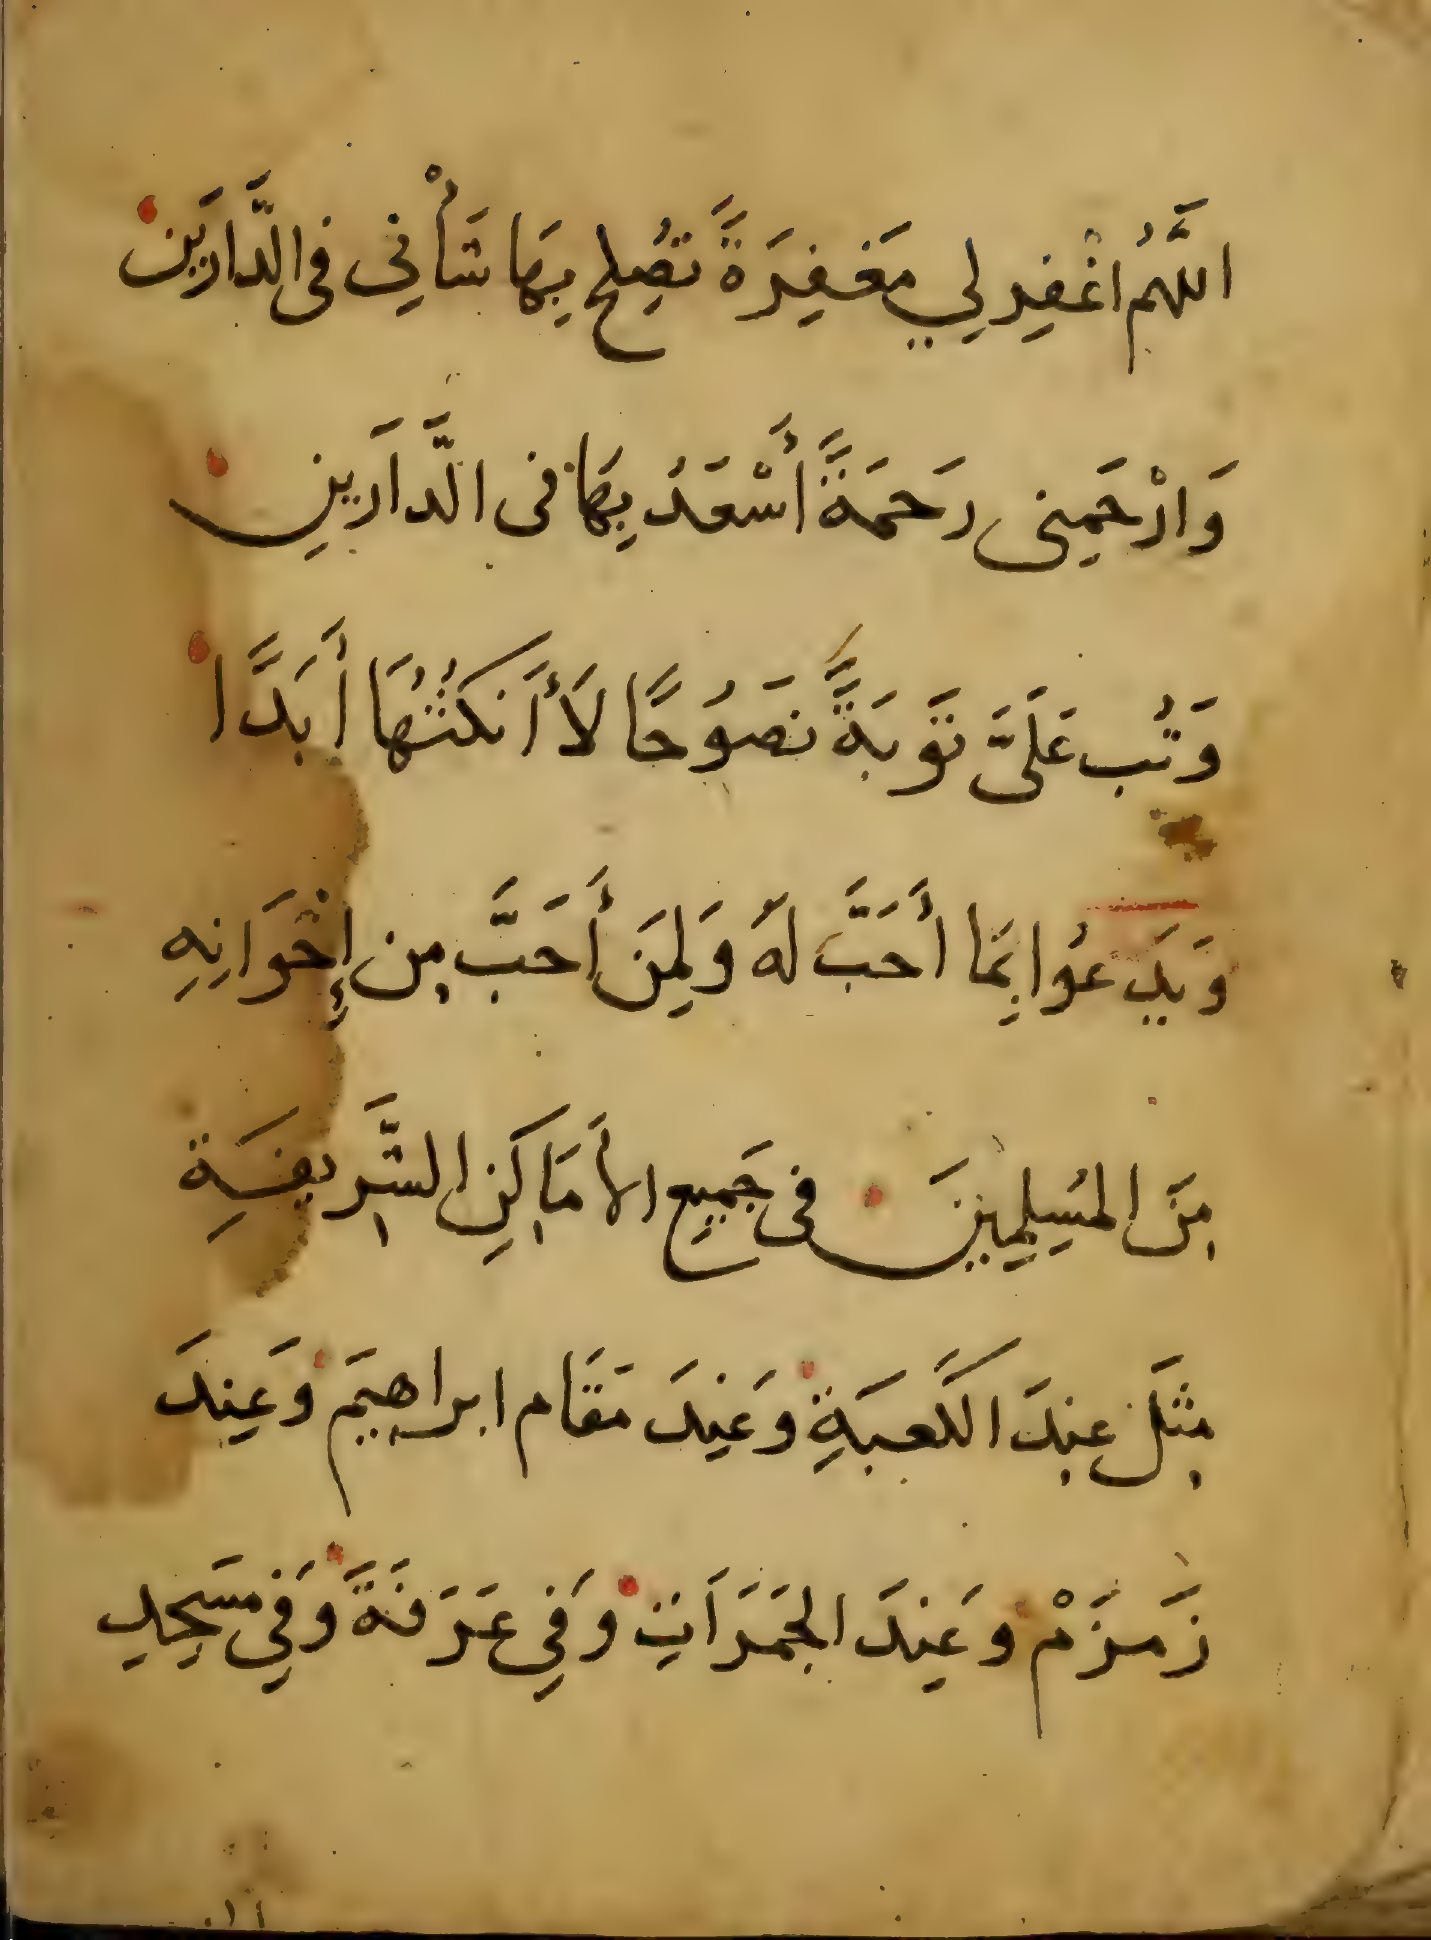 اللَّهُمَّ اغْفِر لِي مَغفِرَةً تُصلِح بِهَا شَأْنِي فى الدَّارَين
وَارْحَمِنى رَحمَةً أَسْعَدُ بِهَا فى الدَّارَينِ
وَتُب عَلَىَّ تَوبَةً نَصَوُحًا لَا أَنكُثُهَا أَبَدًا
وَيَدعُوا بِمَا أَحَبَّ لَهُ وَلِمَن أَحَبَّ مِن إِخْوَانِهِ
مِنَ المُسلِمِينَ فى جَمِيعِ الأَمَاكِنِ الشَّرِيفَةِ
مِثلَ عِندَ الكَعبَةِ وَعِندَ مَقَام ابراهِيمَ وَعِندَ
زَمزَمْ وَعِندَ الجَمَرَاتِ وَفِي عَرَفَةَ وَفِي مَسجِدِ